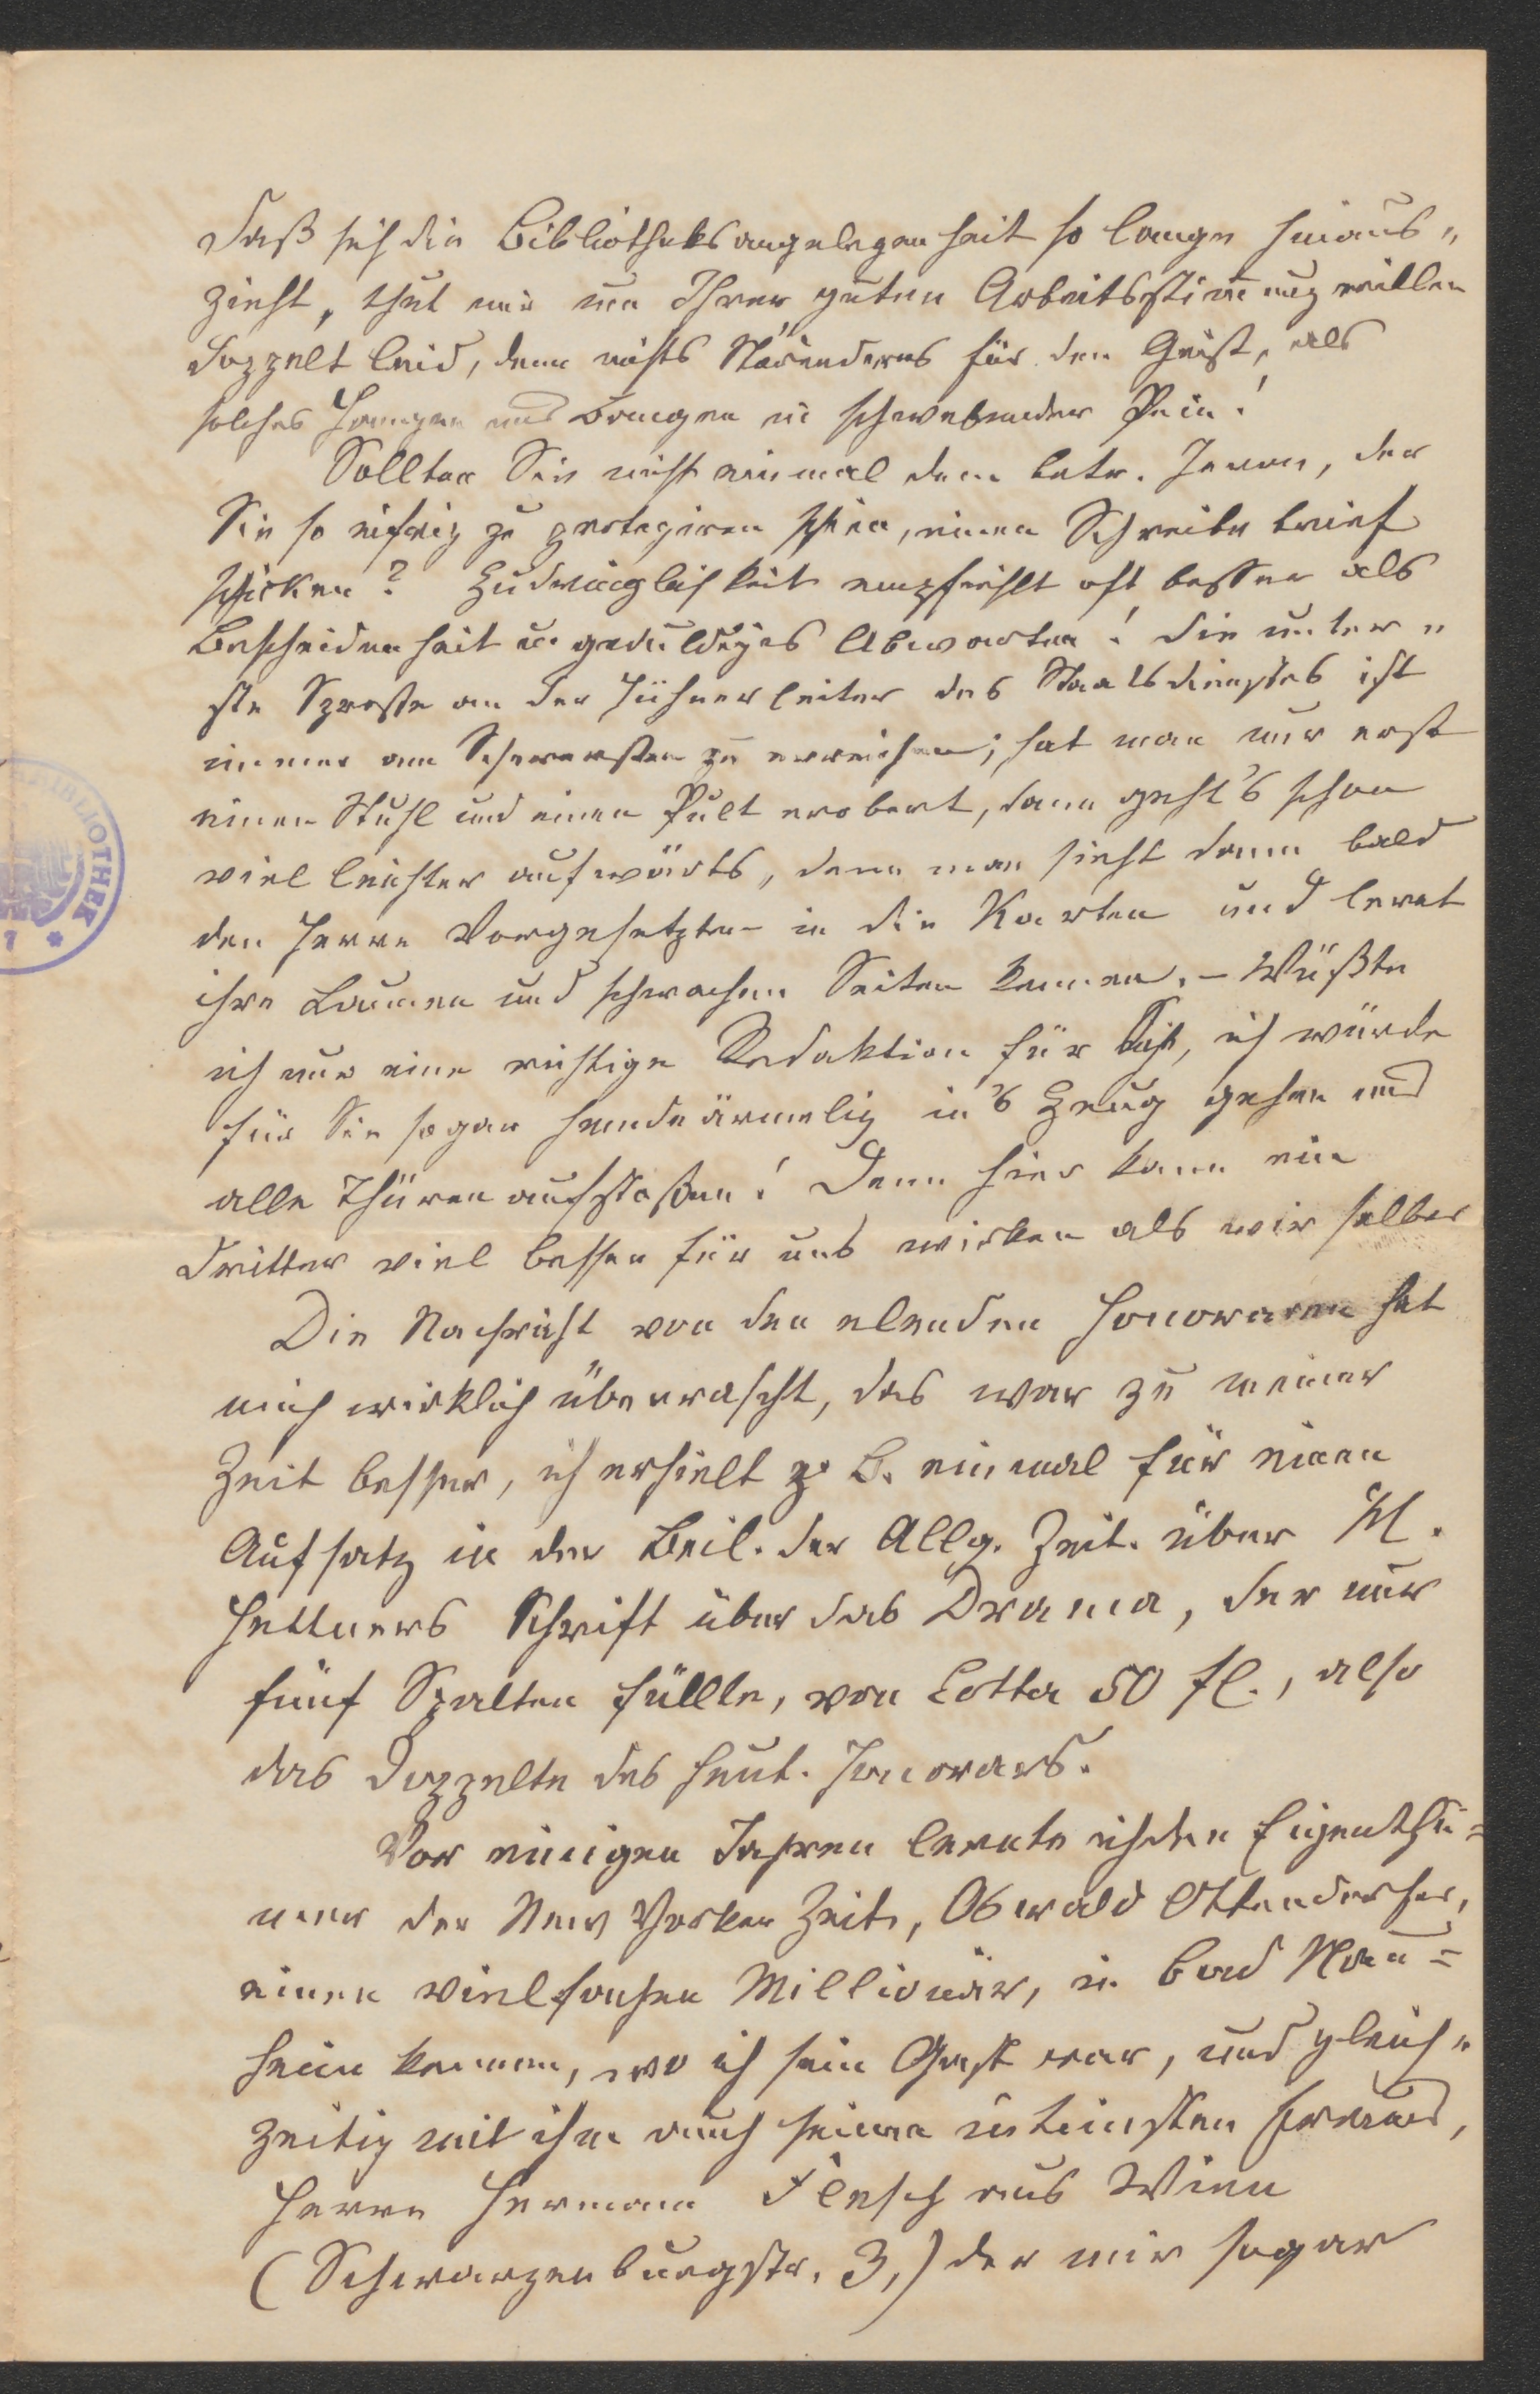 Daß sich die Bibliotheksangelegenheit so lange hinaus„
zieht, thut mir um Ihrer guten Arbeitsstimmung willen
doppelt leid, denn nichts Störenderes für den Geist, als
solches Hangen und Bangen in schwebender Pein!
Sollten Sie nicht einmal dem betr. Herrn, der
Sie so eifrig zu protegiren schien, einen Schreibebrief
schicken? Zudringlichkeit empfiehlt oft besser als
Bescheidenheit u. geduldiges Abwarten! Die unter„
ste Sprosse an der Hühnerleiter des Staatsdienstes ist
immer am Schwersten zu erreichen; hat man nur erst
einen Stuhl und einen Pult erobert, dann geht's schon
viel leichter aufwärts, denn man sieht dann bald
den Herrn Vorgesetzten in die Karten und lernt
ihre Launen und schwachen Seiten kennen. – Wüßte
ich nur eine richtige Redaktion für Sie, ich würde
für Sie sogar hemdeärmelig in's Zeug gehen und
alle Thüren aufstoßen! Denn hier kann ein
Dritter viel besser für uns wirken als wir selber
Die Nachricht von den elenden Honoraren hat
mich wirklich überrascht, das war zu meiner
Zeit besser, ich erhielt z. B. einmal für einen
Aufsatz in der Beil. der Allg. Zeit. über H.
Hettners Schrift über das Drama, der nur
fünf Spalten füllte, von Cotta 50 fl., also
das Doppelte des heut. Honorars.
Vor einigen Jahren lernte ich den Eigenthü=
mer der New Yorker Zeit., Oswald Ottendorfer,
einen vielfachen Millionär, in Bad Nau=
heim kennen, wo ich sein Gast war, und gleich„
zeitig mit ihm auch seinen intimsten Freund,
Herrn Hermann Flesch aus Wien
(Schwarzenburgstr. 3,) der mir sogar
BIBLIOTHEK